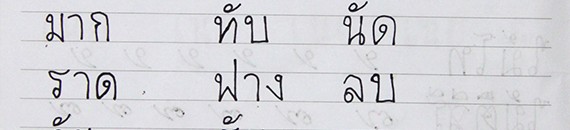 มาก ทับ นัด
ราด ฟาง ลบ